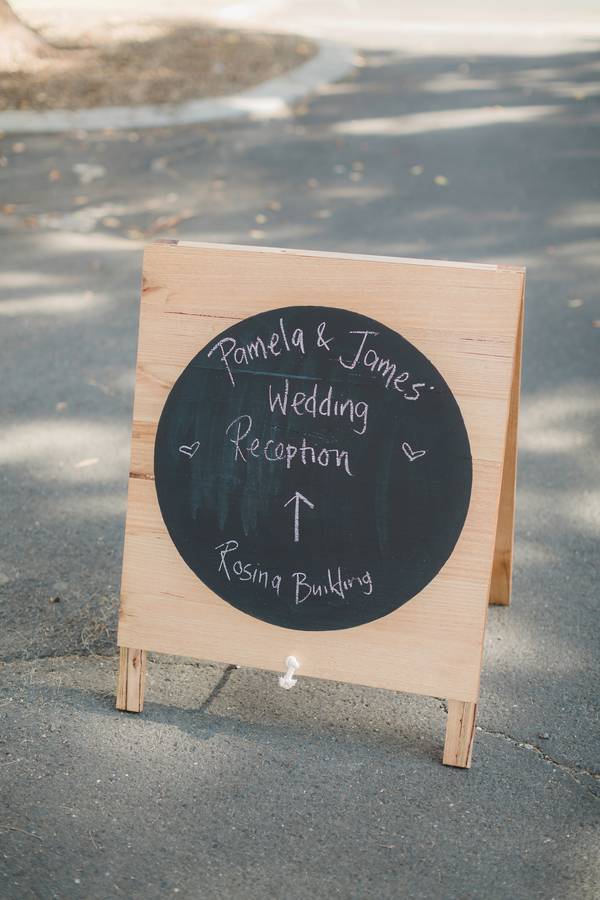 Pamela & James'
Wedding
Reception
↑
Rosina Building